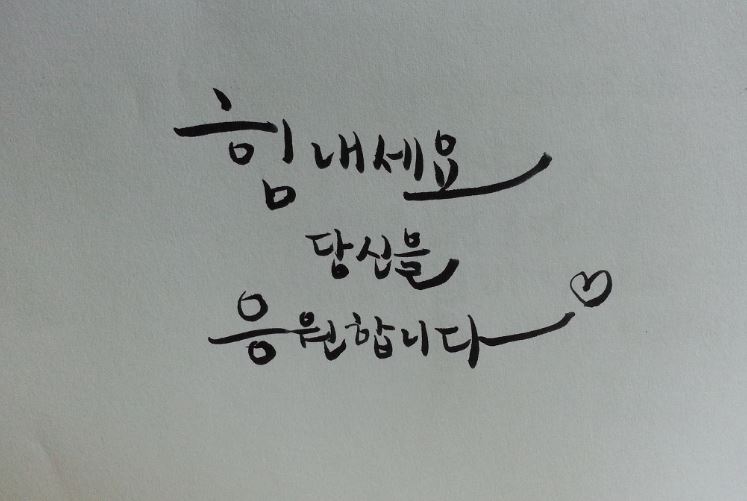 힘내세요
당신을
응원합니다♡